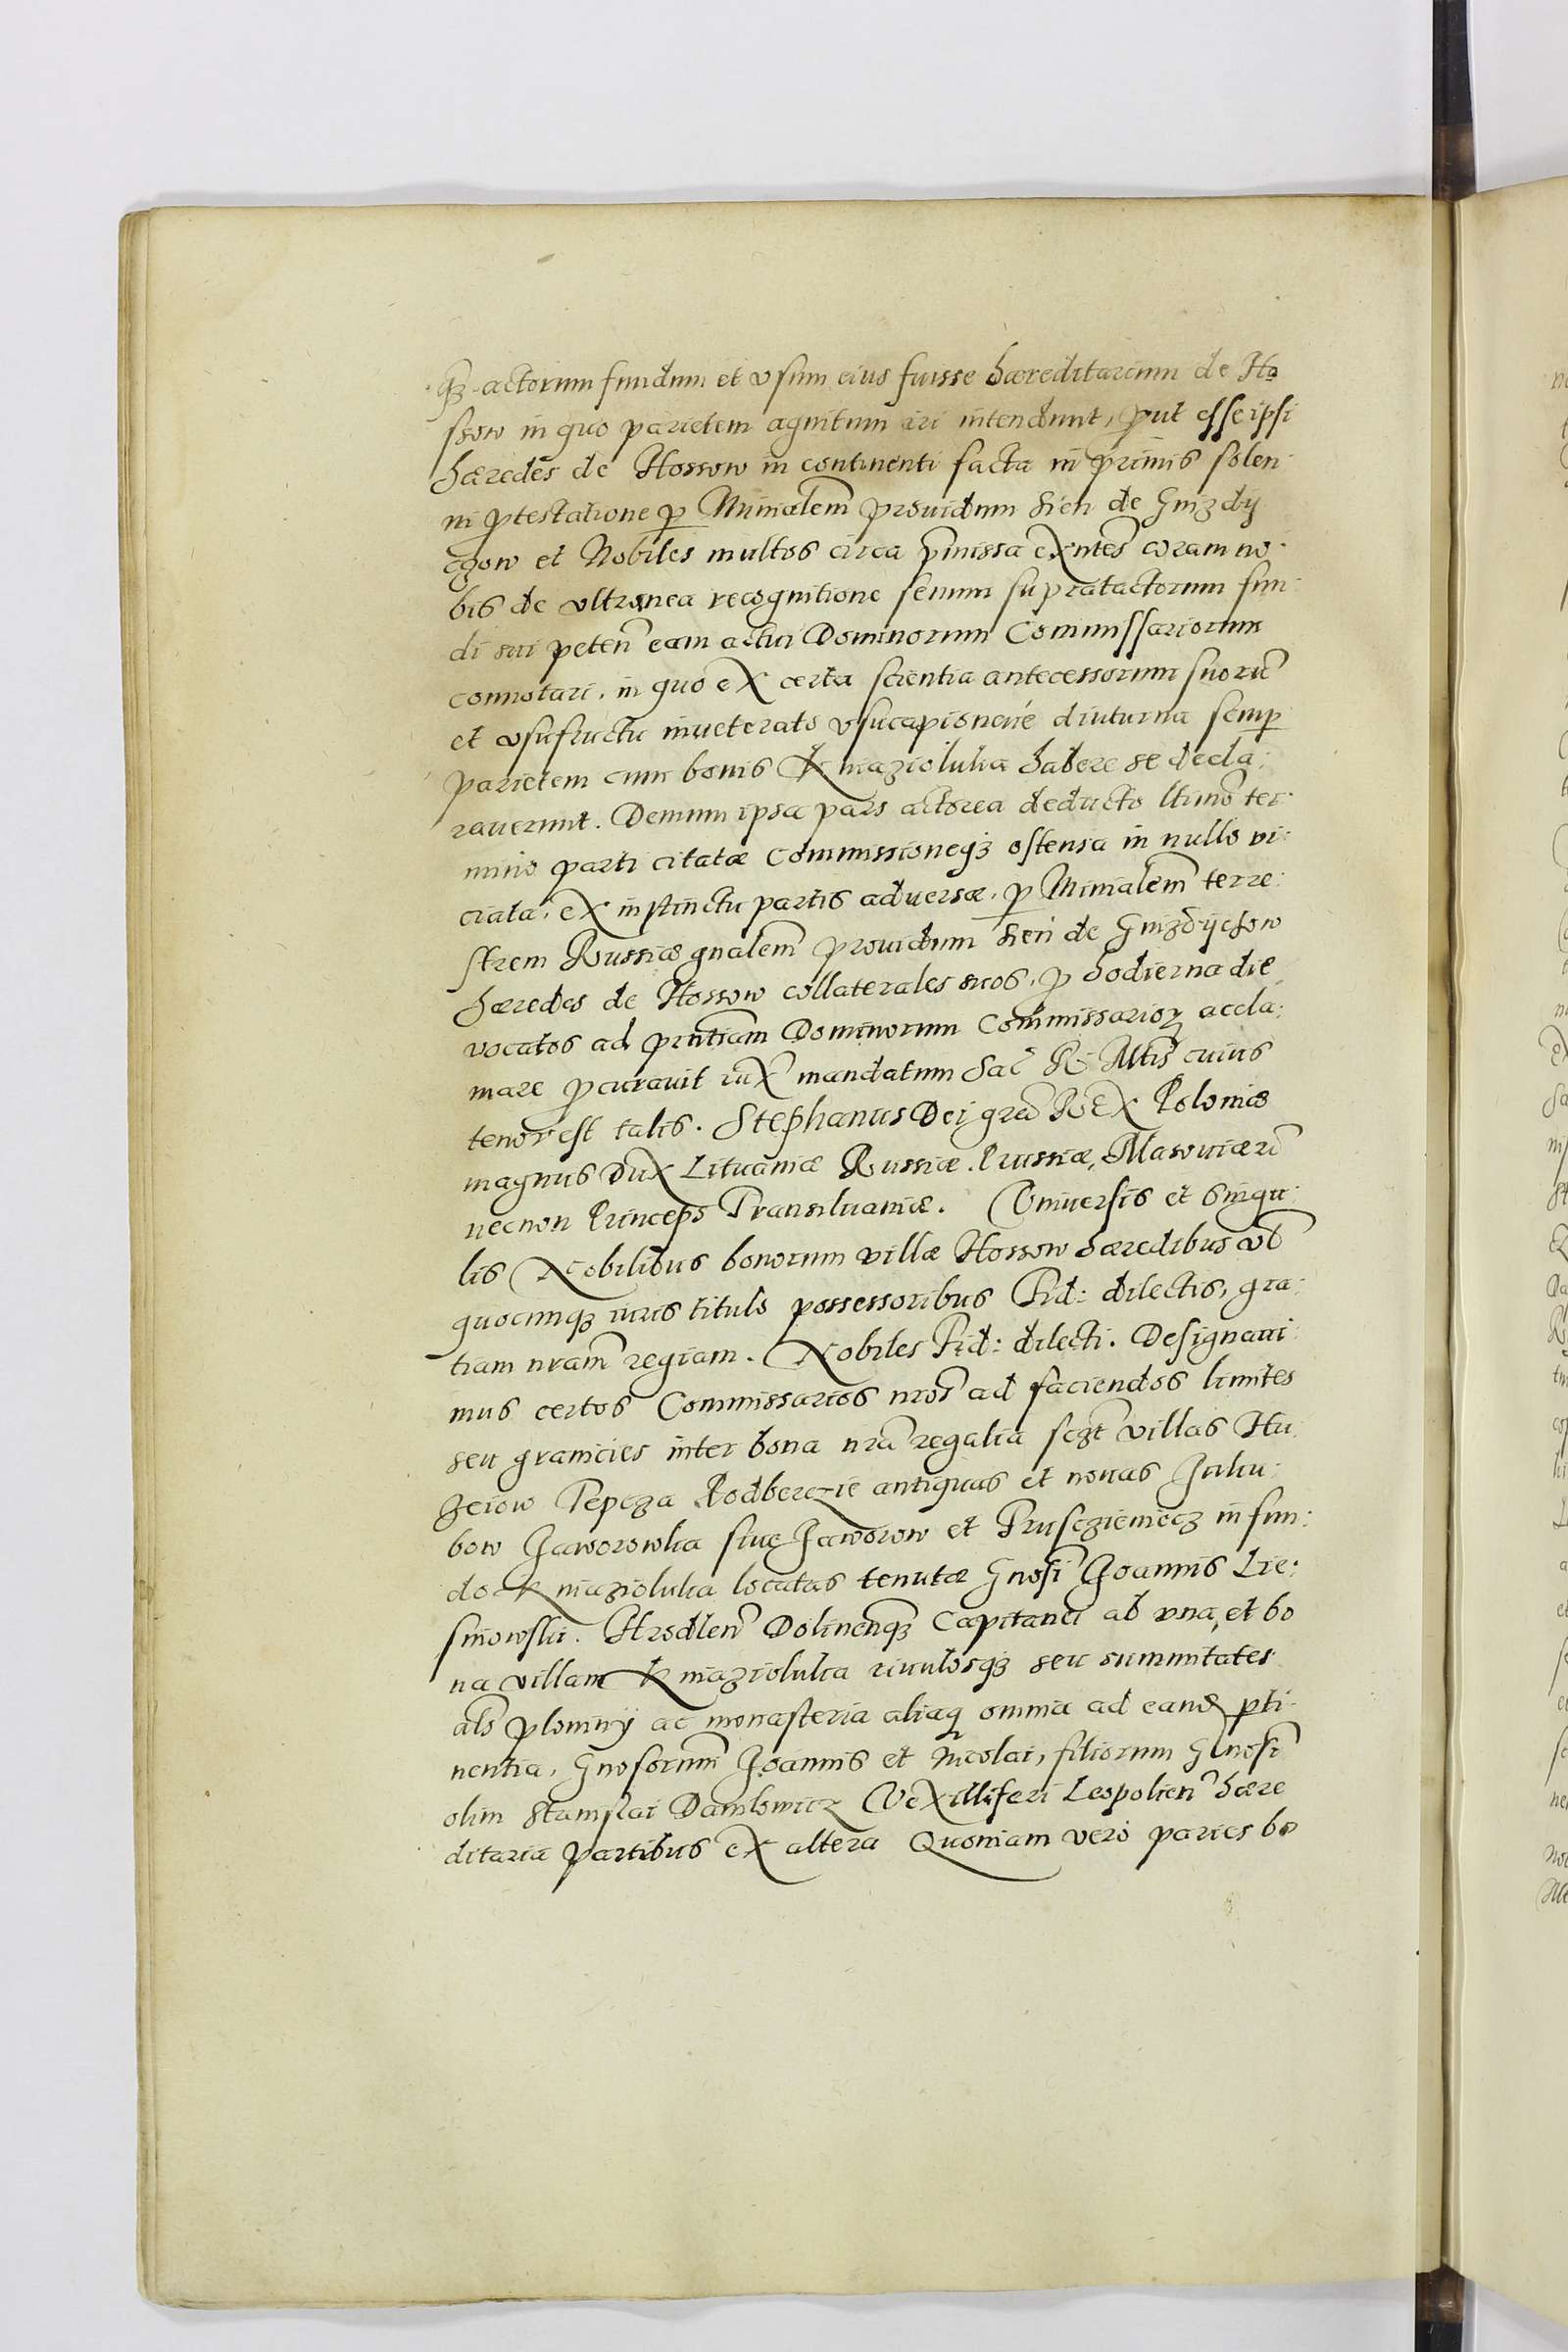 q3 actorum fundum et vsum eius fuisse hæreditarium de Ho
ssow in quo parietem agnitum iri intendunt, put esse ipsi
hæredes de Hossow in continenti facta in primis solen
ni ptestatione p Minialem prouidum Sien de Gnizdy
czow et Nobiles multos circa pmissa exntes coram no
bis de vltronea recognitione senum supratactorum fun
di sui peten eam actui Dominorum Commissariorum
connotari, in quo ex certa scientia antecessorum suoru
et vsufructu inueterato vsucapioneue diuturna semp
parietem cum bonis Kniaziolukia habere se decla
rauerunt. Demum ipsa pars actorea deducto ltimo ter
mino parti citatæ Commissioneq3 ostensa in nullo vi
ciata, ex instinctu partis aduersæ, p Minialem terre
strem Russiæ gnalem prouidum Sien de Gnizdyczow
hæredes de Hossow collaterales suos, p hodierna die
vocatos ad pntiam Dominorum Commissarior accla
mare pcurauit iux mandatum Sac R Mtis cuius
tenor est talis. Stephanus Dei gra Rex Poloniæ
magnus Dux Lituaniæ Russiæ Prussiæ, Masouiæ r
necnon Princeps Transiluaniæ. Vniuersis et singu
lis Nobilibus bonorum villæ Hossow hæredibus vl
quocunq3 iuris titulo possessoribus Fid: dilectis, gra
tiam nram regiam. Nobiles Fid: dilecti. Designaui
mus certos Commissarios nros ad faciendos limites
seu granicies inter bona nra regalia sczt villas Hu
zeiow Pepeza Podberezie antiquas et nouas Jului
bow Jaworowka siue Jaworow et Prusziemiecz in fun
do Kniaziolukia locatas tenutæ Gnosi Joannis Lie
sniowski. Hrodlen Dolinenq3 Capitanei ab vna, et bo
na villam Kniaziolukia riuulosq3 seu summitates
als plominy ac monasteria aliaq omnia ad eand pti
nentia, Gnosorum Joannis et Nicolai, filiorum Gnosi
olim Stanislai Danilowicz Vexilliferi Leopolien hære
ditaria partibus ex altera Quoniam vero paries bo